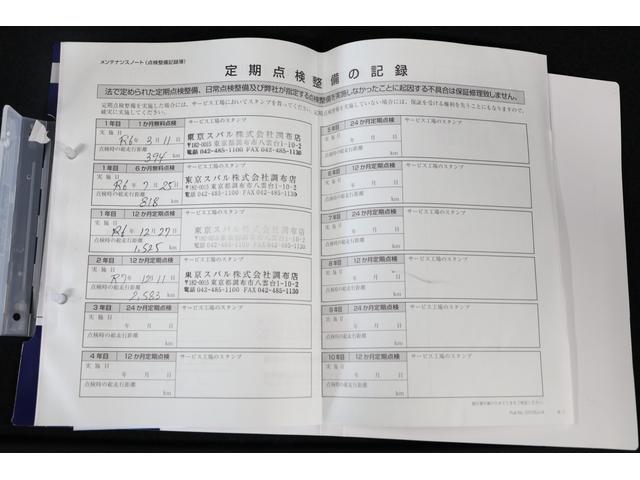 メンテナンスノート(点検整備記録簿)
定期点検整備の記録
法で定められた定期点検整備、日常点検整備及び弊社が指定する点検整備を実施しなかったことに起因する不具合は保証修理致しません。
定期点検整備を実施した場合には、サービス工場においてスタンプを貰ってください。定期点検整備を実施していない場合には、保証を受ける権利を失うことにもなりますので、
確実に実施してください。
1年目 1か月無料点検 サービス工場のスタンプ
実施日
R6年3月11日
点検時の総走行距離
394 km
東京スバル株式会社調布店
〒182-0015 東京都調布市八雲台1-10-2
電話 042-485-1100 FAX 042-485-1130
1年目 6か月無料点検 サービス工場のスタンプ
実施日
R6年7月25日
点検時の総走行距離
818 km
東京スバル株式会社調布店
〒182-0015 東京都調布市八雲台1-10-2
電話 042-485-1100 FAX 042-485-1130
1年目 12か月定期点検 サービス工場のスタンプ
実施日
R6年12月27日
点検時の総走行距離
1,525 km
東京スバル株式会社調布店
〒182-0015 東京都調布市八雲台1-10-2
電話 042-485-1100 FAX 042-485-1130
2年目 12か月定期点検 サービス工場のスタンプ
実施日
R7年12月11日
点検時の総走行距離
2,583 km
東京スバル株式会社調布店
〒182-0015 東京都調布市八雲台1-10-2
電話 042-485-1100 FAX 042-485-1130
3年目 24か月定期点検 サービス工場のスタンプ
実施日
年 月 日
点検時の総走行距離
km
4年目 12か月定期点検 サービス工場のスタンプ
実施日
年 月 日
点検時の総走行距離
km
5年目 24か月定期点検 サービス工場のスタンプ
実施日
年 月 日
点検時の総走行距離
km
6年目 12か月定期点検 サービス工場のスタンプ
実施日
年 月 日
点検時の総走行距離
km
7年目 24か月定期点検 サービス工場のスタンプ
実施日
年 月 日
点検時の総走行距離
km
8年目 12か月定期点検 サービス工場のスタンプ
実施日
年 月 日
点検時の総走行距離
km
9年目 24か月定期点検 サービス工場のスタンプ
実施日
年 月 日
点検時の総走行距離
km
10年目 12か月定期点検 サービス工場のスタンプ
実施日
年 月 日
点検時の総走行距離
km